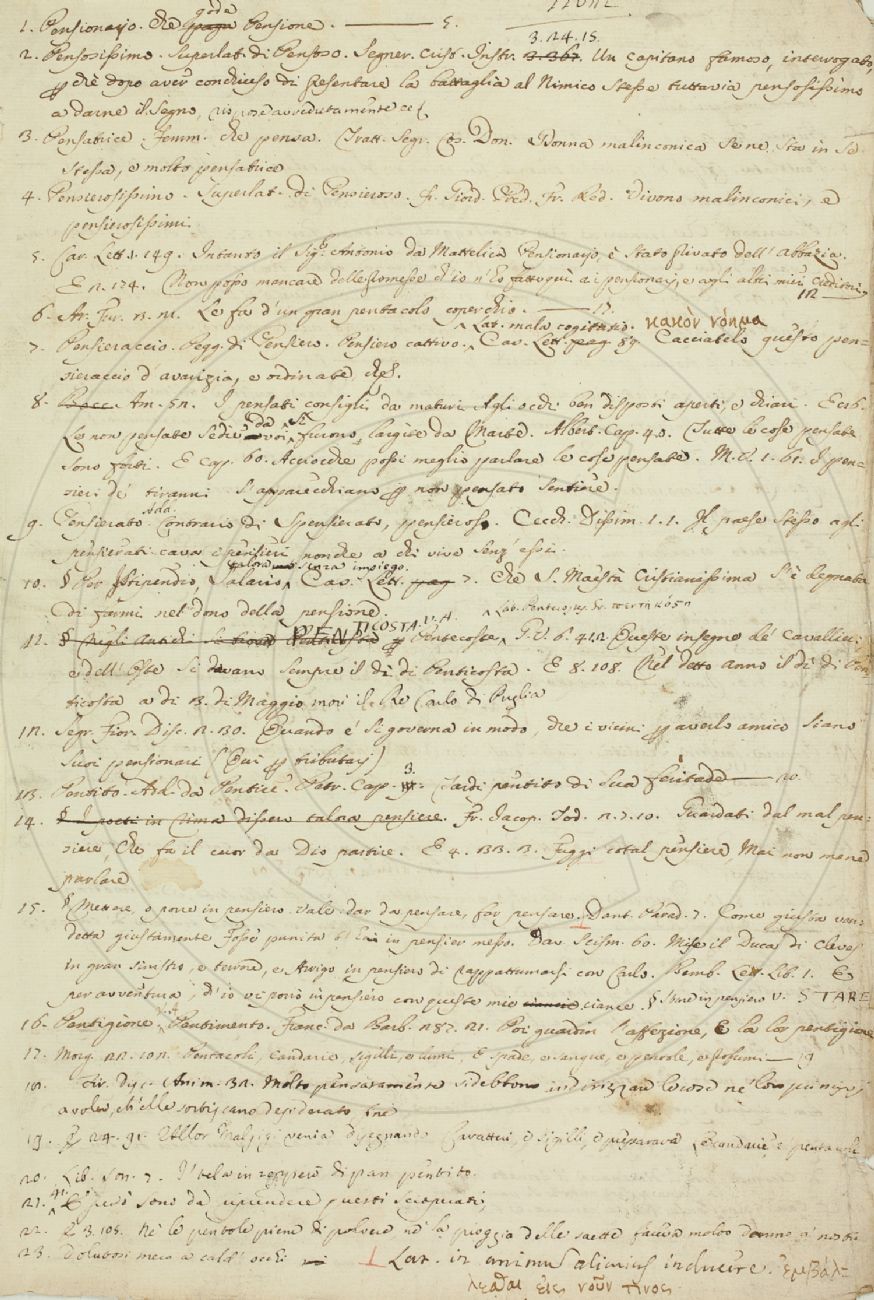 1. Pensionario. Che gode paga Pensione. ——— 5.
3. 24. 15.
2. Pensosissimo. Superlat. di Pensoso. Segner. Crist. Instr. 3.367. Un capitano famoso, interrogato,
che dopo aver conchiuso di presentare la battaglia al Nimico stesse tuttavia pensosissimo
a darne il Segno, rispose avvedutamente ec.
3. Pensatrice. Femm. che pensa. Tratt. Segr. Cos. Don. Donna malinconica se ne sta in se
stessa, e molto pensatrice
4. Pensierosissimo. Superlat. di Pensieroso. Fr. Giord. Pred. Fr. Red. Divono malinconici, e
pensierosissimi.
5. Car. Lett. 1. 149. Intanto il Sig. Antonio da Mattelica Pensionario, è stato privato dell' Abbazia.
E n. 174. Non posso mancare delle promesse ch' io n' ho fatto qui a i pensionarj, e agli altri miei
6. Ar. Fur. Le fa d' un gran pentacolo coperchio. ——— 17.
Lat. mala cogitatio. κακὸν νόημα
7. Pensieraccio. Pegg. di Pensiero. Pensiero cattivo. Car. Lett. pag. 89. Cacciatelo questo pen=
sieraccio d' avarizia, e ordinate, che.
8. Bocc. Am. 52. I pensati consigli da maturi Agli occhi ben disposti aperti, e chiari. E 26.
Le non pensate sedie da voi si furono largite da Marte. Albert. Cap. 40. Tutte le cose pensate
sono forti. E cap. 60. Acciocche possi meglio parlare le cose pensate. M. V. 1. 61. I pen=
sieri de' tiranni s' apparecchiano non pensato sentire.
9. Pensierato. Add. Contrario di Spensierato, pensieroso. Cecch. Dissim. 1. 1. Il paese stesso agli
pensierati cava i pensieri nonche a chi vive senz' essi.
talora senza impiego.
10. § Per Istipendio, Salario, Car. Lett. pag 7. Che S. Maestà Cristianissima s' è degnata
di farmi nel dono della pensione.
PENTICOSTA. V. A. Lat. Pentecoste, Gr. πεντηκόστη
11. Pentecoste, G. V. 6. 412. Queste insegne de' cavallieri
e dell' Oste si davano sempre il dì di Penticosta. E 8. 108. Nel detto anno il dì di Pen
ticosta a dì 13. di Maggio morì il Re Carlo di Puglia
12. Segr. Fior. Disc. 2. 30. Quando e' si governa in modo, che i vicini per averlo amico siano
suoi pensionari (Qui per tributarj)
13. Pentito. Add. da Pentire. Petr. Cap. 3. Tardi pentito di sua feritade ——— 20.
14. § I poeti in rima dissero talora pensiere. Fr. Jacop. Tod. 2. 7. 10. Guardati dal mal pen=
siere, Che fa il cuor da Dio partire. E 4. Fuggi cotal pensiere Mai non mene
parlare
15. § Mettere, o porre in pensiero vale dar da pensare, far pensare. ⊥ Dant. Parad. 7. Come giusta ven=
detta giustamente Fosse punita t' hai in pensier messo. Dav. Scism. 60. Mise il Duca di Cleves
in gran sinistro, e terrore, e Arrigo in pensiero di rappattumarsi con Carlo. Bemb. Lett. Lib. 1. E
per avventura, ch' io vi porrò in pensiero con queste mie ciance. § Stare in pensiero V. STARE
16. Pentigione V. A. Pentimento. Franc. da Barb. 287. 21. Poi guardin l' affezione, E la lor pentigione
17. Morg. 22. 102. Pentacoli, candarie, sigilli, e lumi, E spade, e sangue, e pentole, e profumi — 19
18. Molto pensatamente si debbono indirizzare le cose ne' lor principj
a voler, ch' elle sortiscano desiderato fine
19. E 24. 91. Allor Malgigi venia disegnando Caratteri, e sigilli, e preparava Le candarie, e' pentacoli
20. Lib. Son. 7. I' tel a in zoppere di pan pentito.
21. E però sono da riprendere questi
22. E 3. 108. Nè le pentole piene di polvere nè la pioggia delle saette faceva molto danno a' nostri
23. Dolutosi meco a caldi occhi ⊥ Lat. in animus alicuius inducere. ἐμβάλ=
λεσθαι εἰς νοῦν τινος.